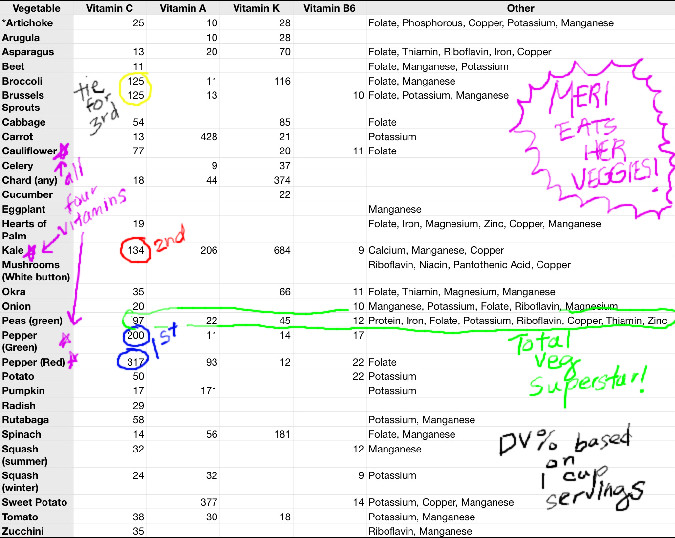 Vegetable Vitamin C Vitamin A Vitamin K Vitamin B6 Other
*Artichoke 25 10 28 Folate, Phosphorous, Copper, Potassium, Manganese
Arugula 10 28
Asparagus 13 20 70 Folate, Thiamin, Riboflavin, Iron, Copper
Beet 11 Folate, Manganese, Potassium
Broccoli 125 11 116 Folate, Manganese
Brussels 125 13 10 Folate, Potassium, Manganese
Sprouts
tie
for
3rd
Cabbage 54 85 Folate
Carrot 13 428 21 Potassium
Cauliflower 77 20 11 Folate
Celery 9 37
Chard (any) 18 44 374
Cucumber 22
Eggplant Manganese
all
four
vitamins
Hearts of 19 Folate, Iron, Magnesium, Zinc, Copper, Manganese
Palm
Kale 134 206 684 9 Calcium, Manganese, Copper
2nd
Mushrooms Riboflavin, Niacin, Pantothenic Acid, Copper
(White button)
Okra 35 66 11 Folate, Thiamin, Magnesium, Manganese
Onion 20 10 Manganese, Potassium, Folate, Riboflavin, Magnesium
Peas (green) 97 22 45 12 Protein, Iron, Folate, Potassium, Riboflavin, Copper, Thiamin, Zinc
Pepper 200 11 14 17
(Green)
1st
Pepper (Red) 317 93 12 22 Folate
Potato 50 22 Potassium
Pumpkin 17 171 Potassium
Radish 29
Rutabaga 58 Potassium, Manganese
Spinach 14 56 181 Folate, Manganese
Squash 32 12 Manganese
(summer)
Squash 24 32 9 Potassium
(winter)
Sweet Potato 377 14 Potassium, Copper, Manganese
Tomato 38 30 18 Potassium, Manganese
Zucchini 35 Riboflavin, Manganese
MERI
EATS
HER
VEGGIES!
Total
veg
superstar!
DV% based
on
1 cup
servings